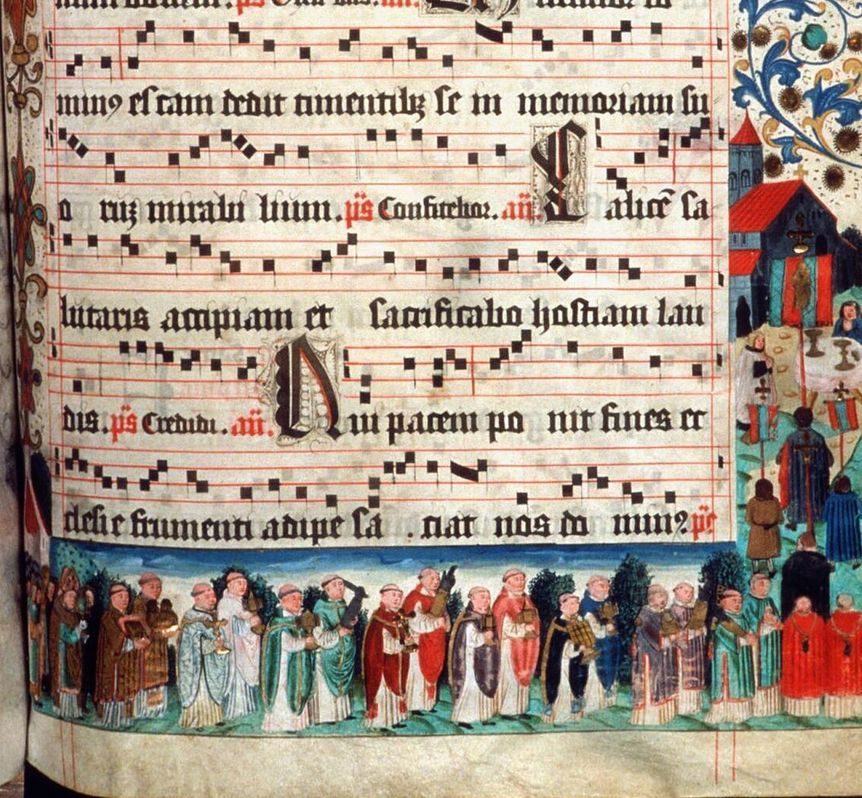 minꝰ escam dedit timentibꝫ se in memoriam su
o ruꝫ mirabi lium. ps̄ Confitebor. an̄. Calicē sa
lutaris accipiam et sacrificabo hostiam lau
dis. ps̄ Credidi. an̄. Qui pacem po nit fines ec
clesi e frumenti adipe sa . ciat nos do minꝰ ps̄